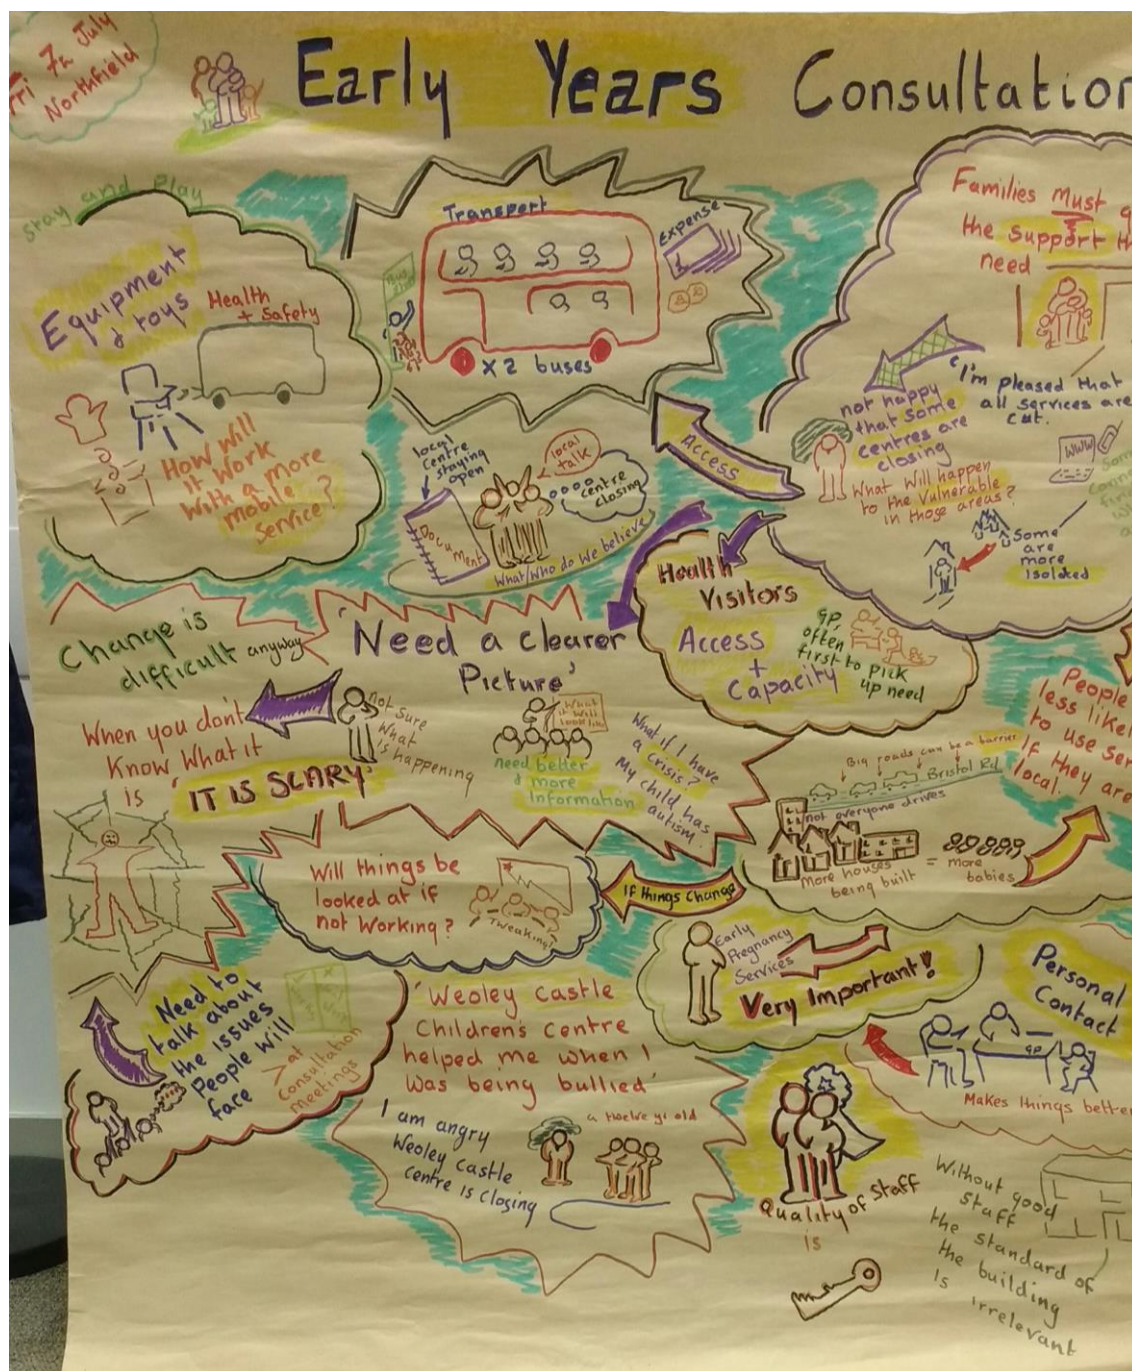 Fri 7th July
Northfield
Early Years Consultation
stay and play
Equipment
& toys
Health
+ Safety
How Will
it Work
With a more
mobile
Service?
Transport
BUS
STOP
Expense
x 2 buses
Families Must
the support
need
"I'm pleased that
all services are
cut.
not happy
that some
centres are
closing
What Will happen
to the Vulnerable
in those areas?
WWW
Some
are
more
isolated
Access
local
centre
staying
open
local
talk
centre
closing
Document
What/Who do We believe
Health
Visitors
Access
+
Capacity
GP,
often
first to pick
up need
Change is
difficult anyway
'Need a clearer
Picture'
When you don't
Know What it
is 'IT IS SCARY'
not sure
What
is happening
What
it Will
look like
need better
& more
Information
What if I have
a crisis?
My child has
autism.
People
less likely
to use
if they are
local.
Big roads can be a barrier
Bristol Rd
not everyone drives
More houses
being built
= more
babies
If things Change
Will things be
looked at if
not Working?
Tweaking
Early
Pregnancy
Services
Very Important!
Personal
Contact
GP
Makes things better
Need to
talk about
the issues
People Will
face
> at
consultation
meetings
'Weoley Castle
Children's Centre
helped me when I
Was being bullied'
a twelve yr old
I am angry
Weoley Castle
centre is closing
Quality of Staff
is
Without good
staff
the standard of
the building
is irrelevant